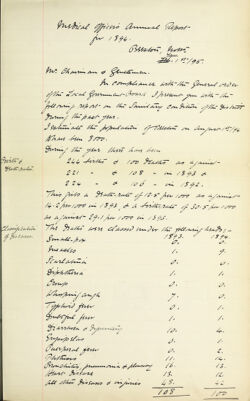 Medical Officer's Annual Report
for 1894.
Beeston, Notts.
Feb. 1st/95.
Mr. Chairman & Gentlemen.
In compliance with the General order
of the Local Government Board I present you with the
following report on the Sanitary condition of the District
during the past year.
I estimate the population of Beeston on
to have been 8000.
During the year there have been
Births &
Death-rates.
244 births & 100 deaths as against
221 " & 108 " in 1893 &
224 " & 106 " in 1892.
This gives a Death-rate of 12.5 per 1000 as against
14.2 per 1000 in 1893, & a birth-rate of 30.5 per 1000
as against 29.1 per 1000 in 1893.
Classification
of Diseases.
The Deaths were classed under the following heads:-
1893. 1894
Small-pox 0. 0.
Measles 1. 9.
Scarlatina 0. 0.
Diphtheria 1. 1.
Croup 0. 0.
Whooping cough 7. 0.
Typhoid fever 0. 1.
Doubtful fever 1. 1.
Diarrhoea & Dysentery 10. 4.
Erysipelas 0. 1.
Puerperal fever 0. 2.
Phthisis 11. 14.
Bronchitis, pneumonia & pleurisy 16. 13.
Heart disease 12.
All other diseases & injuries 42
108 100